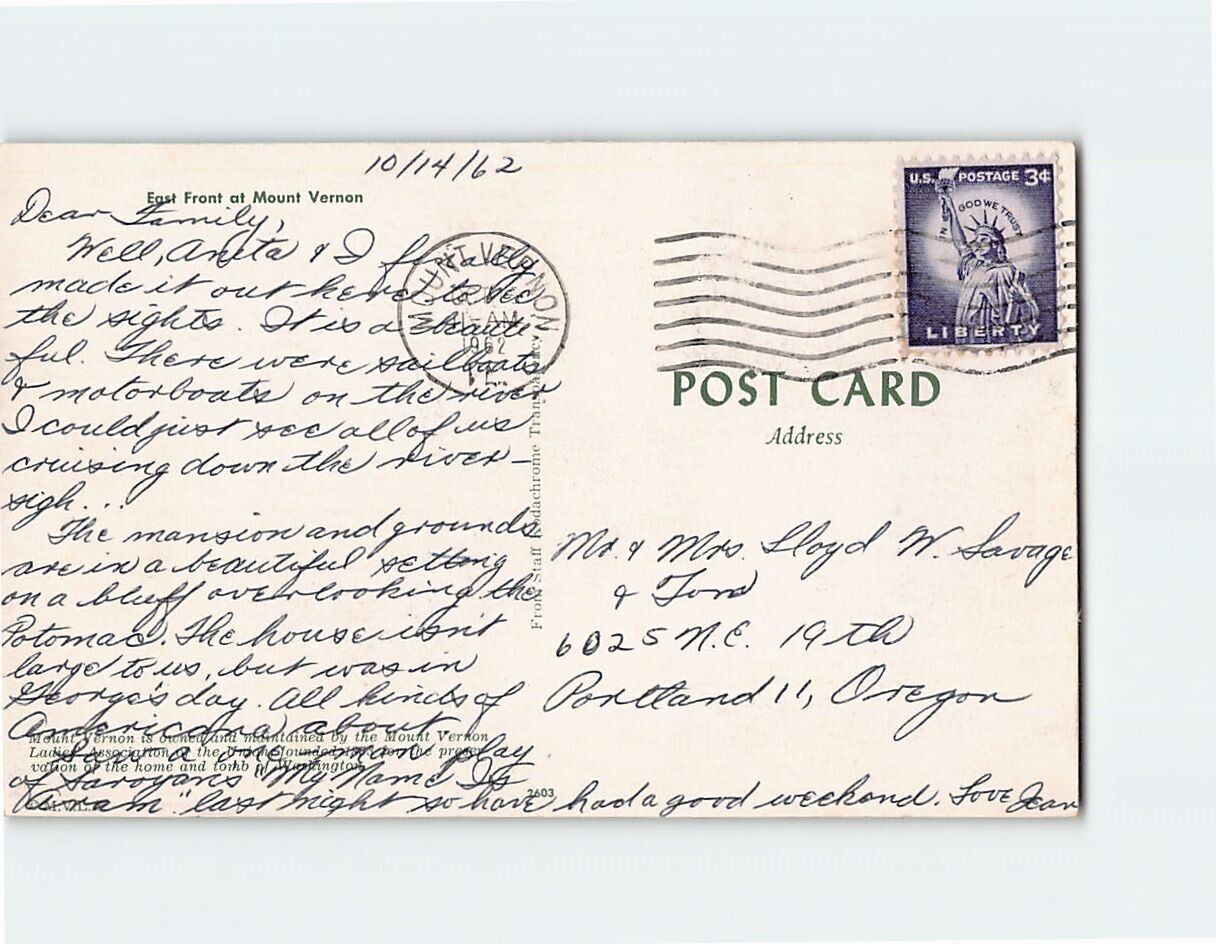 10/14/62
East Front at Mount Vernon
Dear Family,
Well, Anita & I finally
made it out here to see
the sights. It is a beauti
ful. There were sailboats
& motorboats on the river
I could just see all of us
cruising down the river –
sigh...
The mansion and grounds
are in a beautiful setting
on a bluff overlooking the
Potomac. The house isn't
large to us, but was in
George's day. All kinds of
Americana about
Saw a one man play
of Saroyans "My Name Is
Aram" last night so have had a good weekend. Love Jean
Mount Vernon is owned and maintained by the Mount Vernon
Ladies' Association of the Union founded for the preser-
vation of the home and tomb of Washington
2603
From Staff Kodachrome Transparency
MOUNT VERNON
AM
1962
U.S. POSTAGE 3¢
IN GOD WE TRUST
LIBERTY
POST CARD
Address
Mr. & Mrs. Lloyd W. Savage
& Tom
6025 N.E. 19th
Portland 11, Oregon